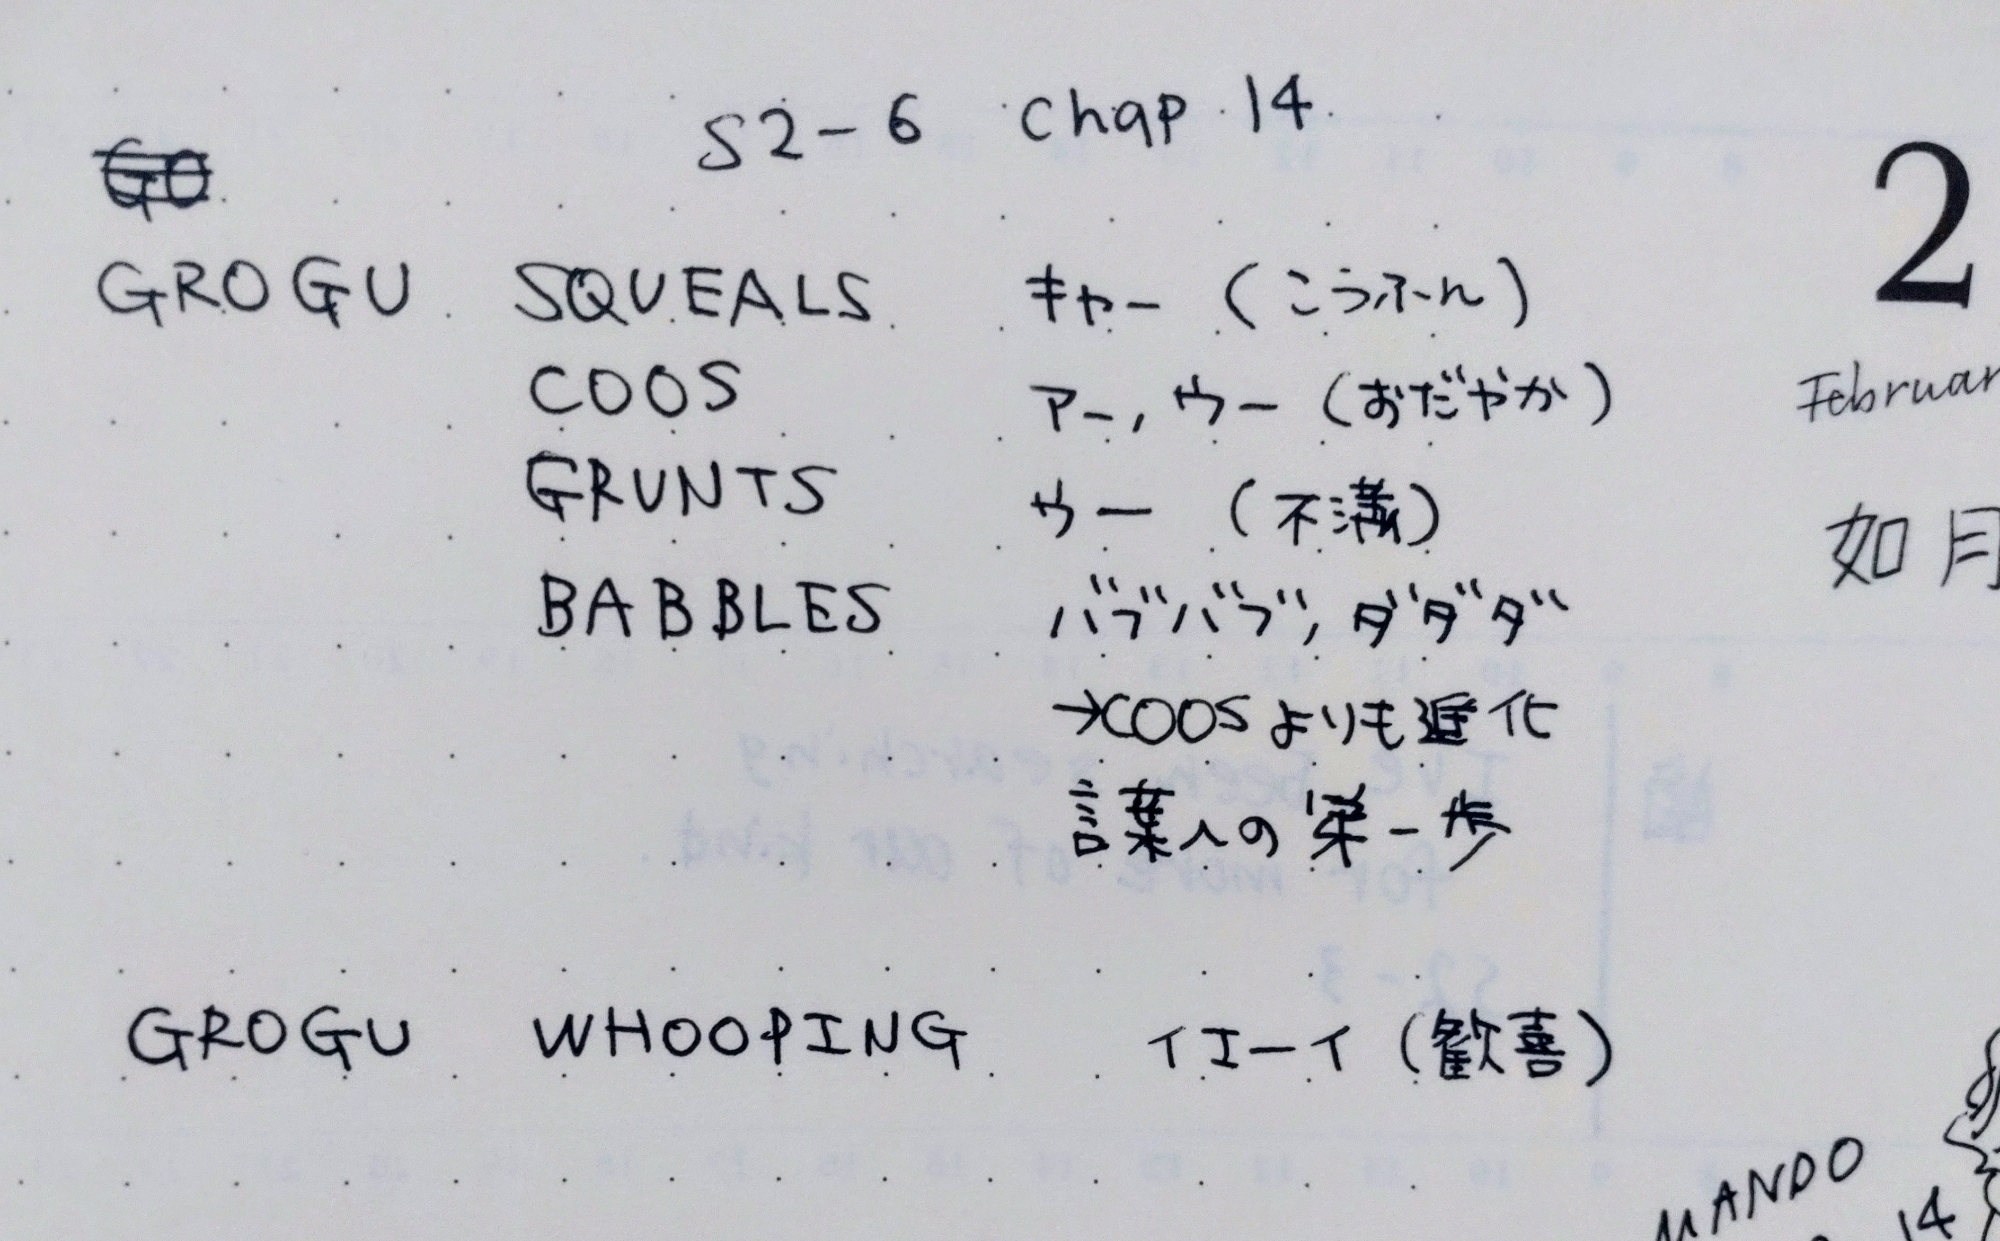 S2-6 Chap 14
GO
GROGU SQUEALS キャー (こうふん)
COOS アー, ウー (おだやか)
GRUNTS ウー (不満)
BABBLES バブバブ, ダダダ
→COOSよりも進化
言葉への第一歩
GROGU WHOOPING イエーイ (歓喜)
2
Februar
如月
MANDO
14
I've been searching
for more of our kind.
S2-3